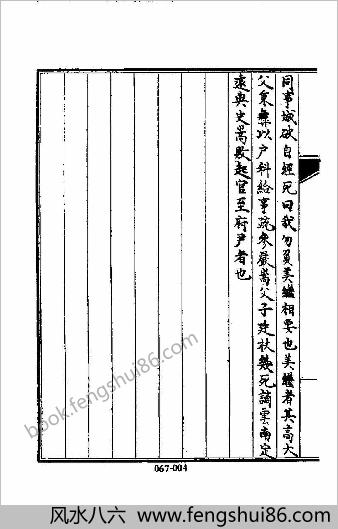 同事城破自經死曰我勿負美繼相要也美繼者其高大
父東無以户科給事疏參嚴嵩父子廷杖幾死謫雲南定
遠典史嵩敗起官至府尹者也
067-004
book.fengshui86.com
风水八六 www.fengshui86.com